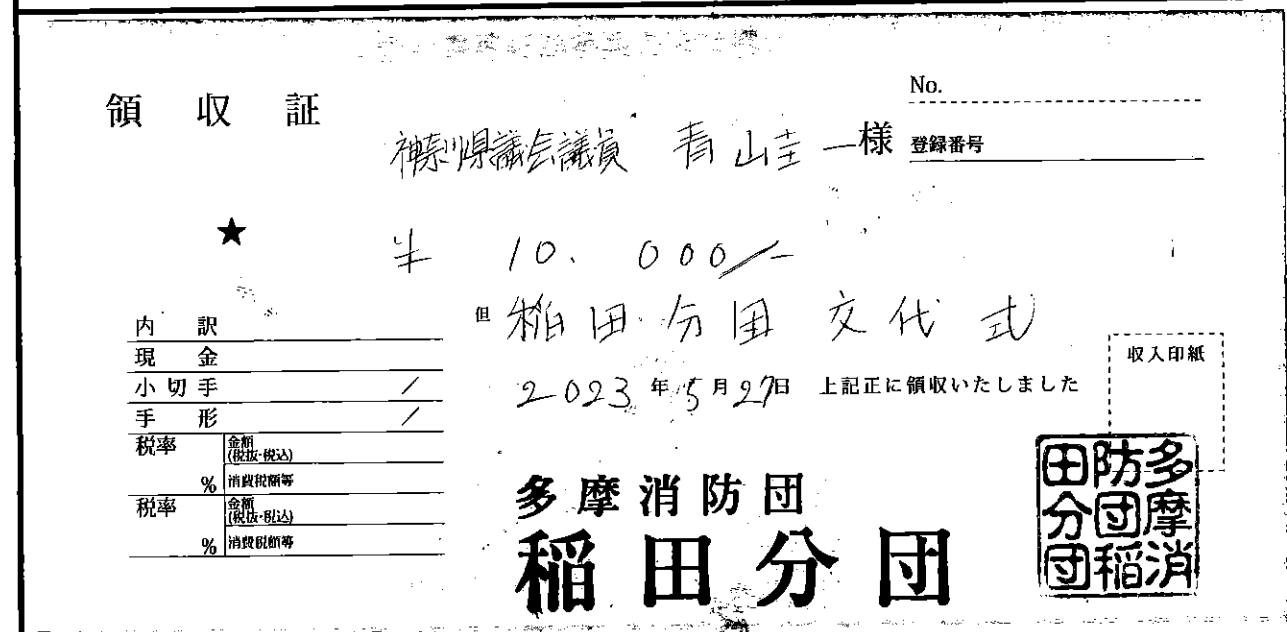 領収証
No.
登録番号
神奈川県議会議員 青山圭一様
★
¥ 10.000/-
但 稲田分団 交代式
2023年5月27日 上記正に領収いたしました
内訳
現金
小切手 /
手形 /
税率 金額(税抜・税込)
% 消費税額等
税率 金額(税抜・税込)
% 消費税額等
収入印紙
多摩消防団
稲田分団
多摩消
防団稲
田分団